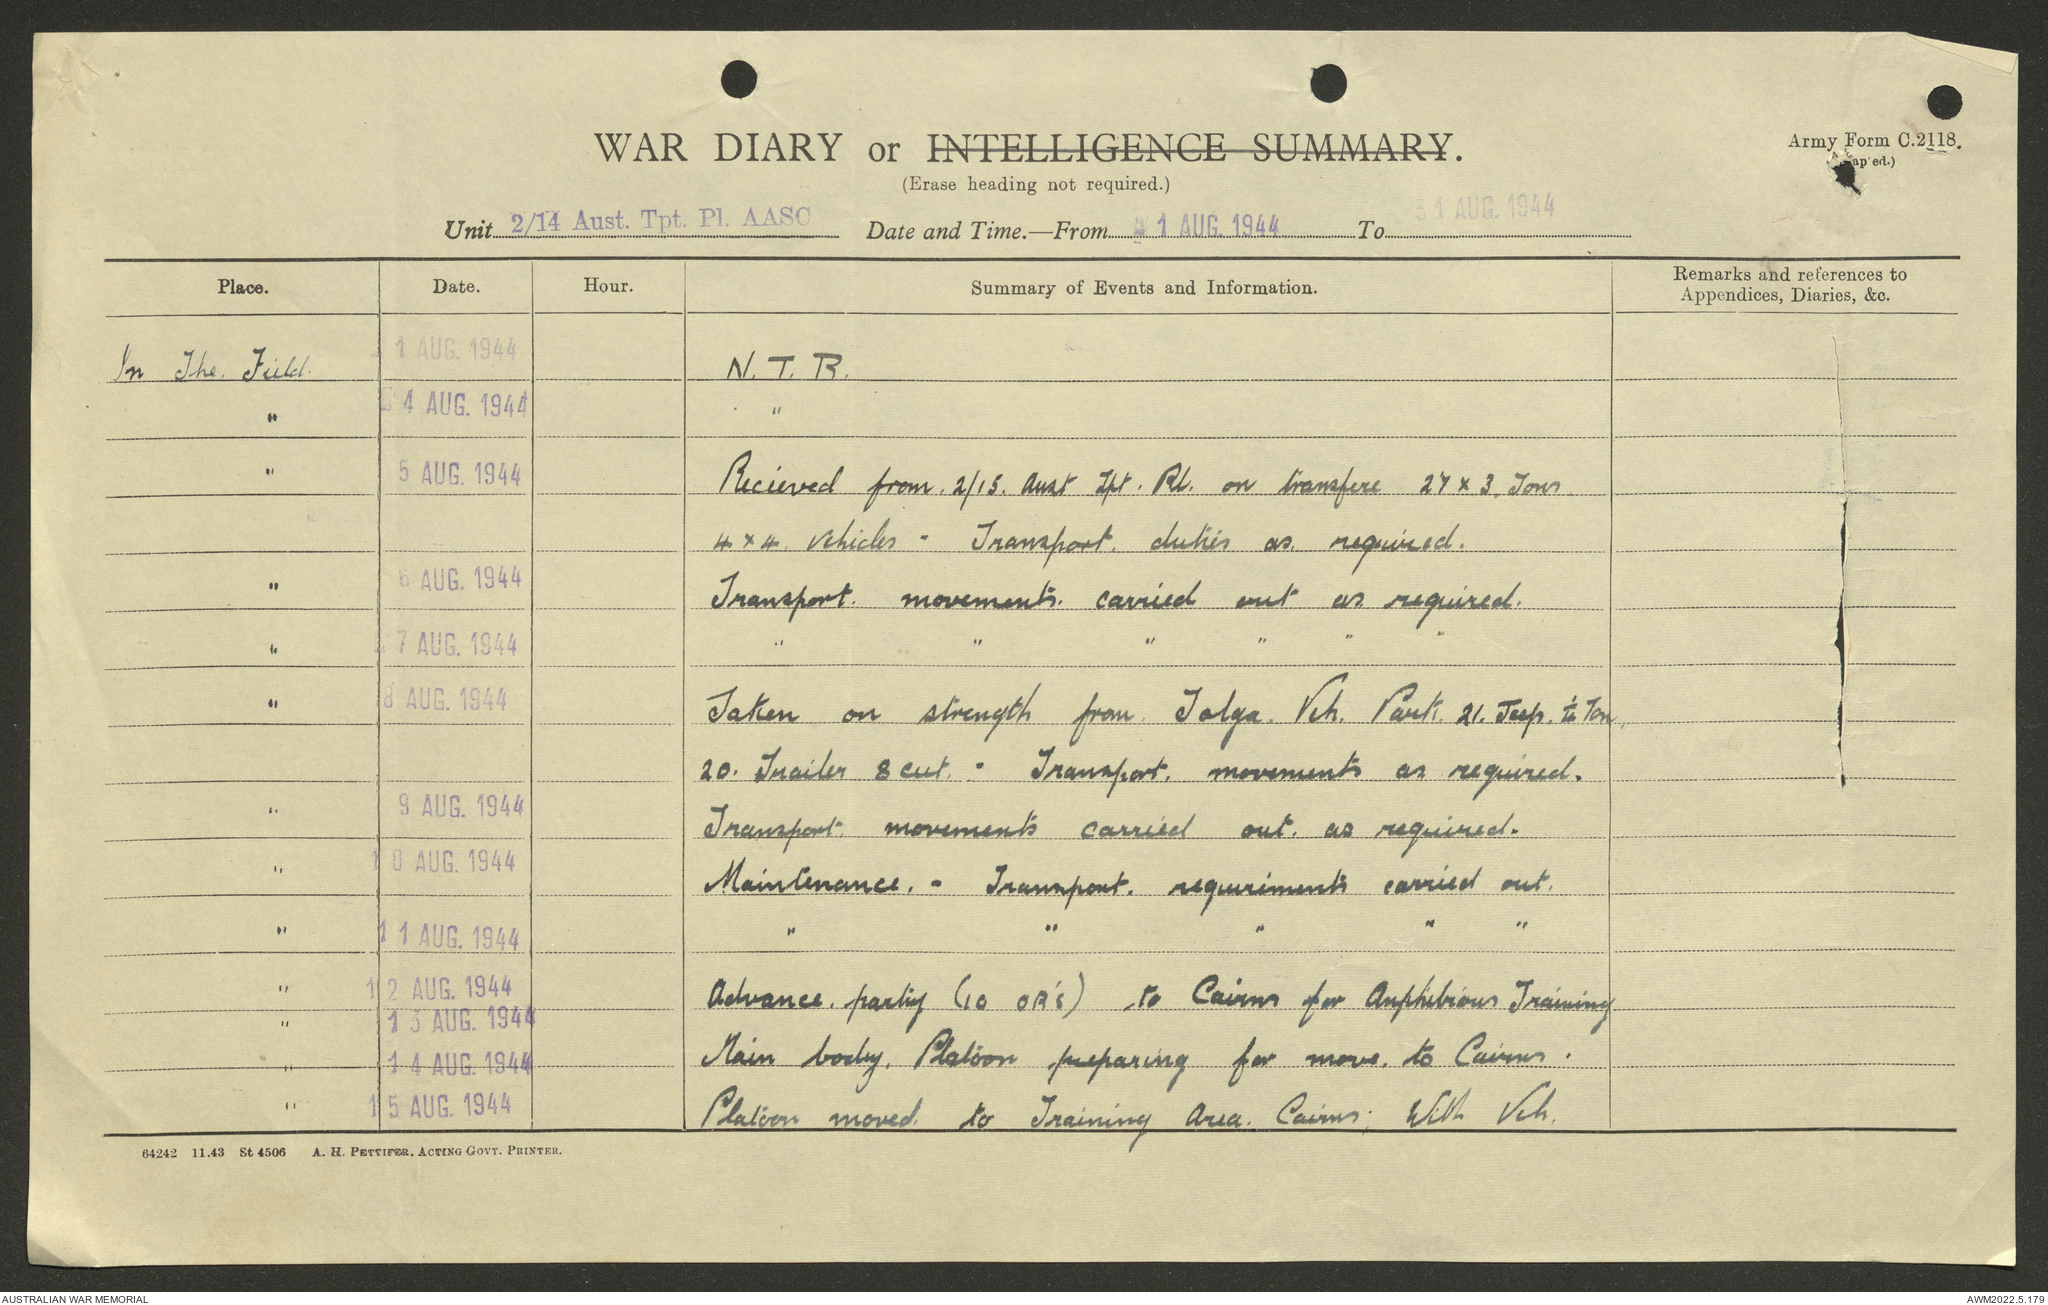 WAR DIARY or INTELLIGENCE SUMMARY.
(Erase heading not required.)
Army Form C.2118.
ap'ed.)
Unit 2/14 Aust. Tpt. Pl. AASC Date and Time.—From 1 AUG. 1944 To 31 AUG. 1944
Place. Date. Hour. Summary of Events and Information. Remarks and references to
Appendices, Diaries, &c.
In The. Field. 1 AUG. 1944 N. T. R.
" 4 AUG. 1944 "
" 5 AUG. 1944 Recieved from. 2/15. Aust Tpt. Pl. on transfere 27 x 3. Tons
4 x 4. vehicles - Transport. duties as. required.
" 6 AUG. 1944 Transport. movements. carried out as required.
" 7 AUG. 1944 " " " " " "
" 8 AUG. 1944 Taken on strength from. Tolga. Veh. Park. 21. Jeep. ¼ Ton,
20. Trailer 8 cwt. - Transport. movements as required.
" 9 AUG. 1944 Transport. movements carried out. as required.
" 10 AUG. 1944 Maintenance. - Transport. requriments carried out.
" 11 AUG. 1944 " " " " "
" 12 AUG. 1944 Advance. party (10 OR's) to Cairns for Amphibious Training
" 13 AUG. 1944
" 14 AUG. 1944 Main body. Platoon preparing for move. to Cairns.
" 15 AUG. 1944 Platoon moved. to Training Area. Cairns; With Veh.
64242 11.43 St 4506 A. H. PETTIFER, ACTING GOVT. PRINTER.
AUSTRALIAN WAR MEMORIAL AWM2022.5.179